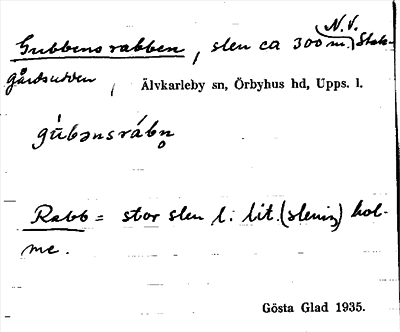 N.V.
Gubbens rabben, sten ca 300 m. Stak-
gårdsudden, Älvkarleby sn, Örbyhus hd, Upps. l.
gùbənsrábn̥
Rabb = stor sten l. lit. (stenig) hol-
me.
Gösta Glad 1935.